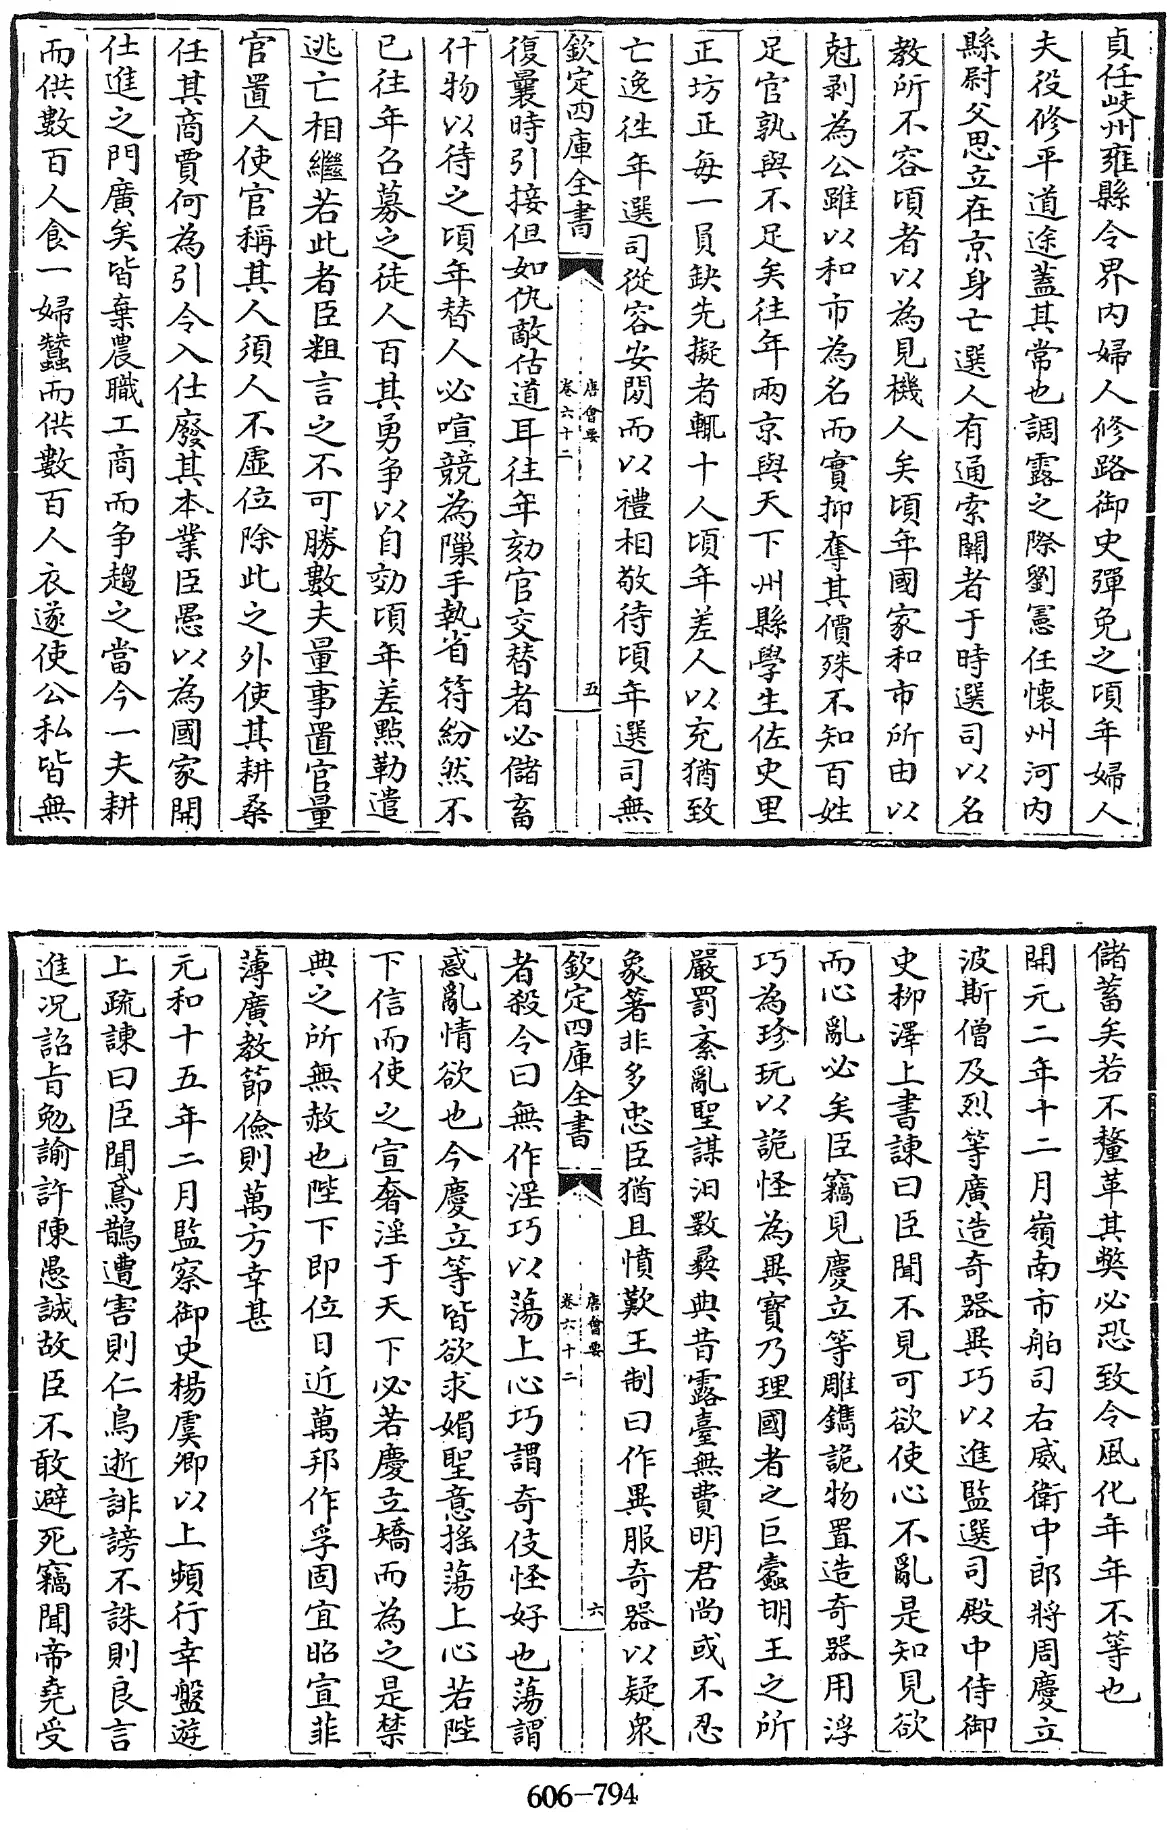 貞任岐州雍縣令界内婦人修路御史彈免之頃年婦人
夫役修平道途蓋其常也調露之際劉憲任懷州河内
縣尉父思立在京身亡選人有通索闕者于時選司以名
教所不容頃者以為見機人矣頃年國家和市所由以
尅剥為公雖以和市為名而實抑奪其價殊不知百姓
足官孰與不足矣往年兩京與天下州縣學生佐史里
正坊正每一員缺先擬者輒十人頃年差人以充猶致
亡逸往年選司從容安閒而以禮相敬待頃年選司無
欽定四庫全書
唐會要
卷六十二
五
復曩時引接但如仇敵估道耳往年効官交替者必儲畜
什物以待之頃年替人必喧競為隟手執省符紛然不
已往年召募之徒人百其勇争以自効頃年差點勒遣
逃亡相繼若此者臣粗言之不可勝數夫量事置官量
官置人使官稱其人須人不虛位除此之外使其耕桑
任其商賈何為引令入仕廢其本業臣愚以為國家開
仕進之門廣矣皆棄農職工商而争趨之當今一夫耕
而供數百人食一婦蠶而供數百人衣遂使公私皆無
儲蓄矣若不釐革其弊必恐致令風化年年不等也
開元二年十二月嶺南市舶司右威衛中郎將周慶立
波斯僧及烈等廣造奇器異巧以進監選司殿中侍御
史柳澤上書諫曰臣聞不見可欲使心不亂是知見欲
而心亂必矣臣竊見慶立等雕鐫詭物置造奇器用浮
巧為珍玩以詭怪為異寶乃理國者之巨蠹明王之所
嚴罰紊亂聖謀汨斁彝典昔露臺無費明君尚或不忍
象箸非多忠臣猶且憤歎王制曰作異服奇器以疑衆
欽定四庫全書
唐會要
卷六十二
六
者殺令曰無作淫巧以蕩上心巧謂奇伎怪好也蕩謂
惑亂情欲也今慶立等皆欲求媚聖意搖蕩上心若陛
下信而使之宣奢淫于天下必若慶立矯而為之是禁
典之所無赦也陛下即位日近萬邦作孚固宜昭宣菲
薄廣教節儉則萬方幸甚
元和十五年二月監察御史楊虞卿以上頻行幸盤遊
上疏諫曰臣聞鳶鵲遭害則仁鳥逝誹謗不誅則良言
進况詔旨勉諭許陳愚誠故臣不敢避死竊聞帝堯受
606-794